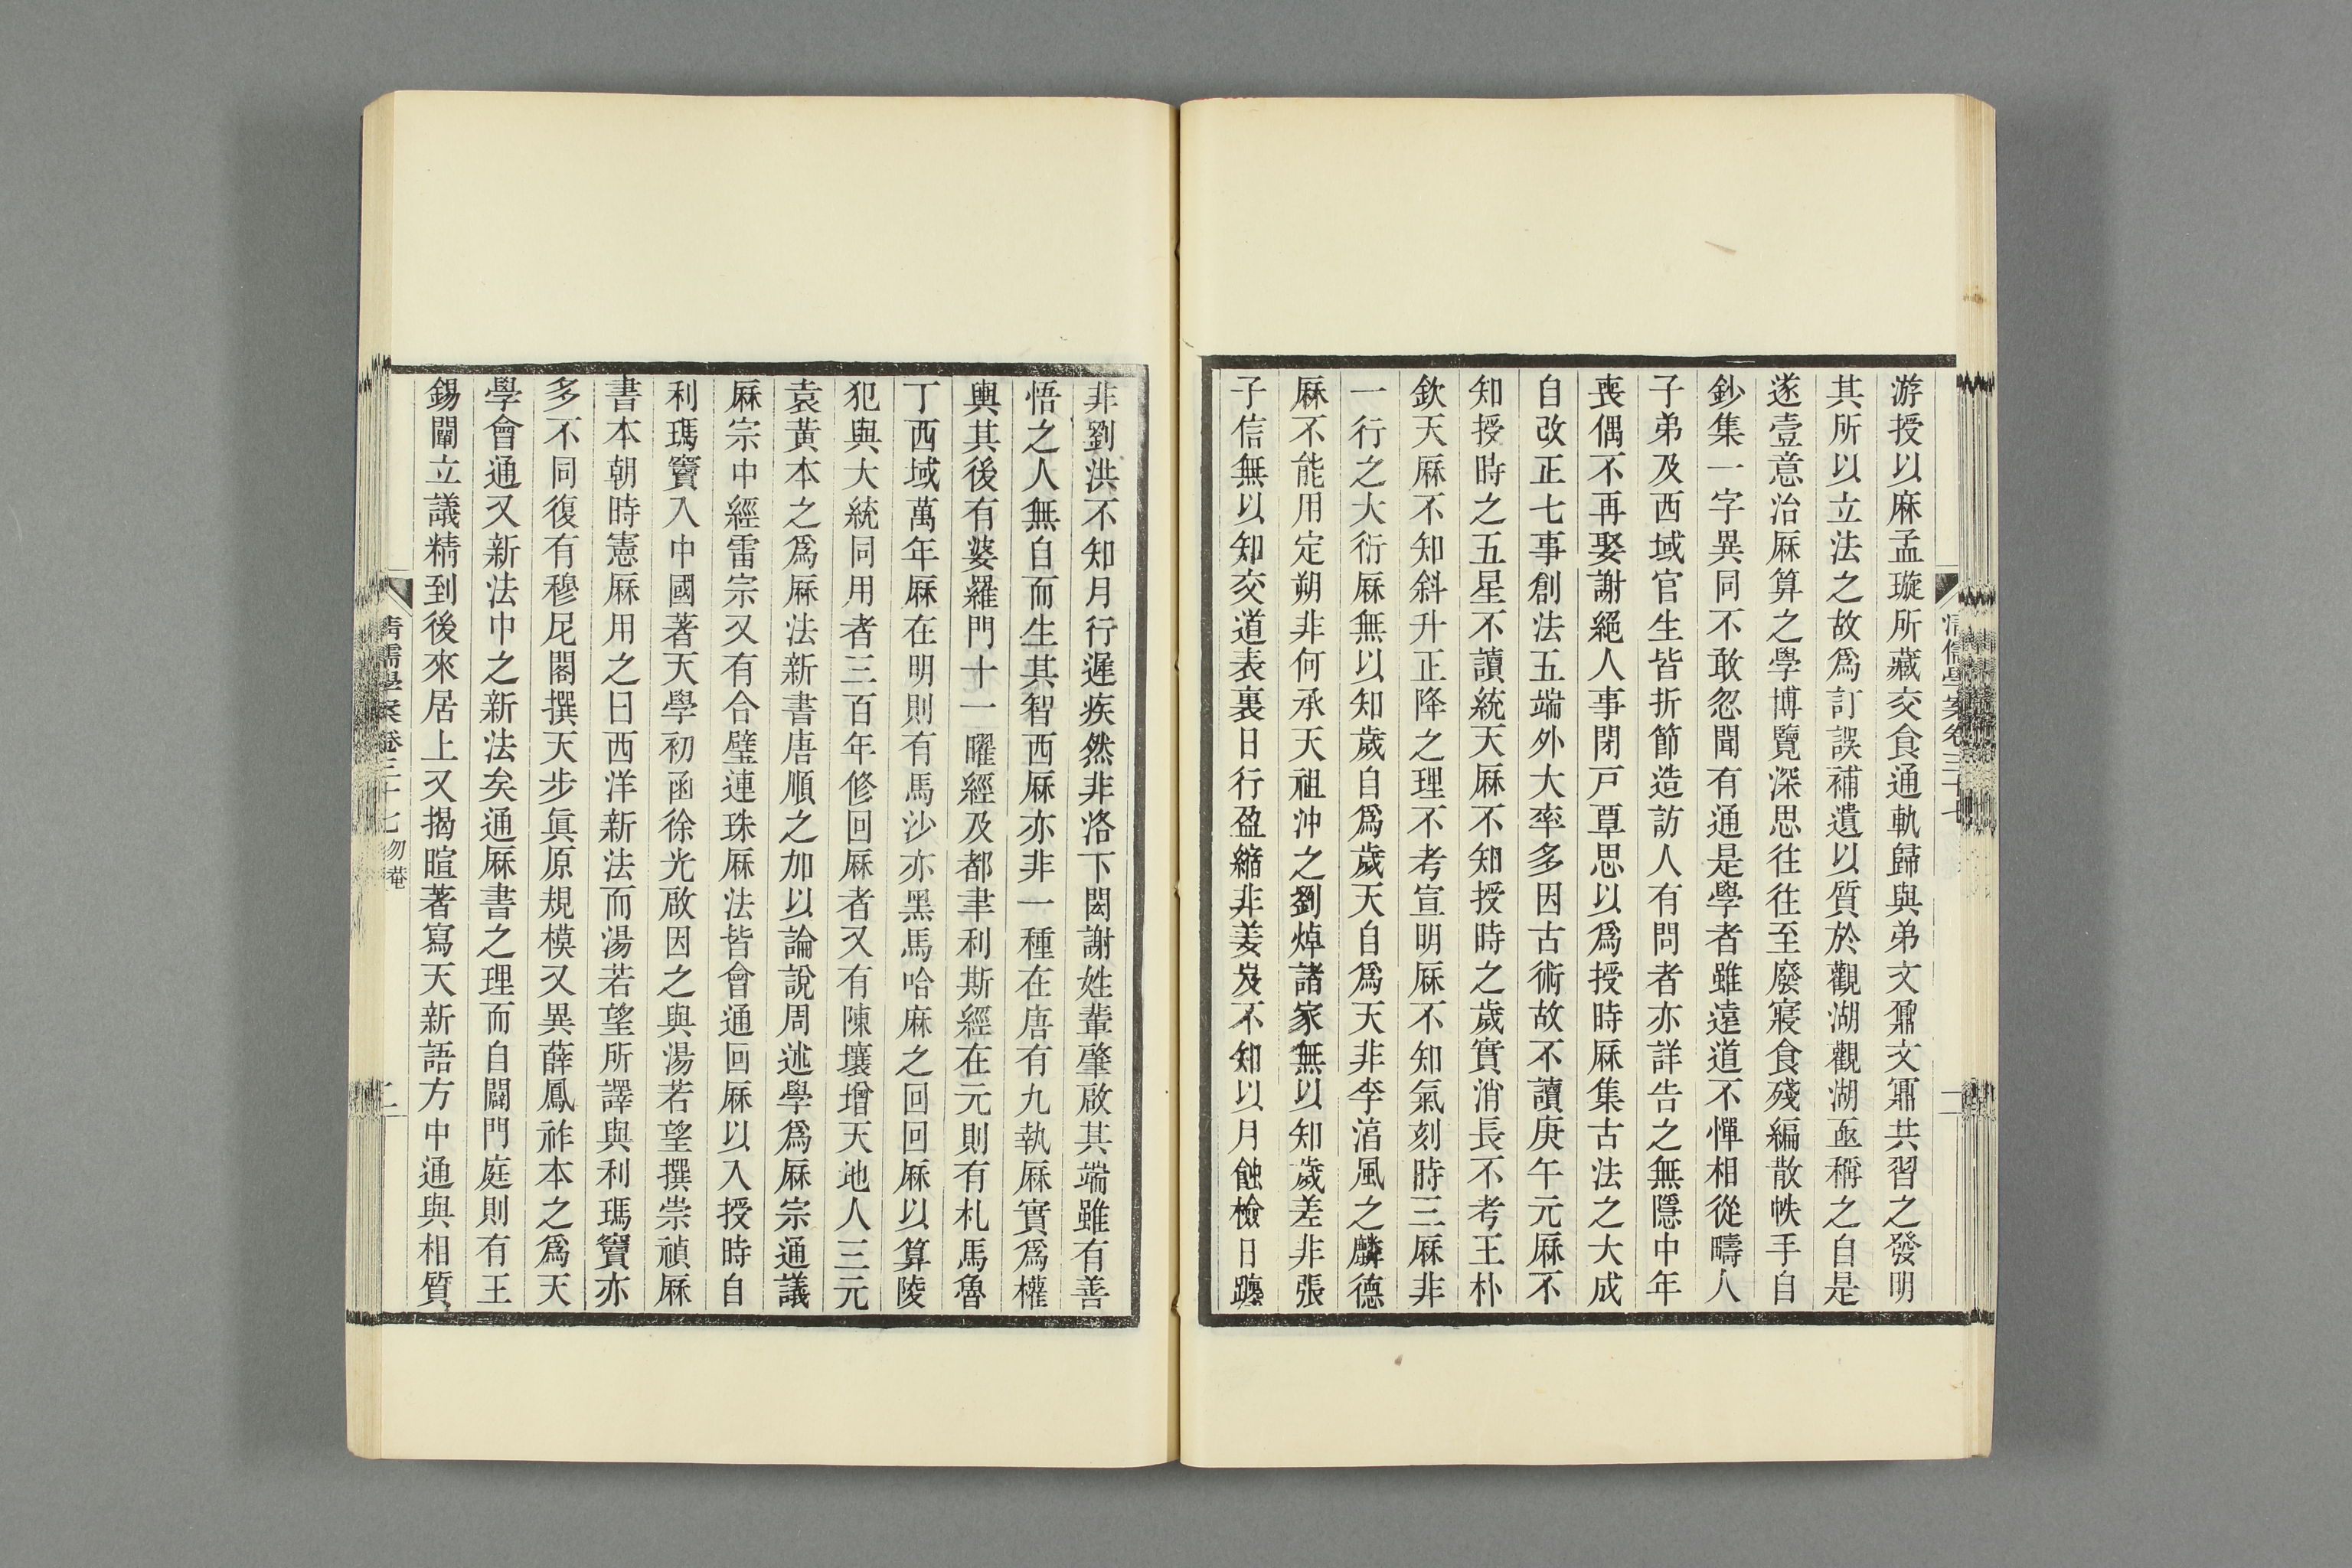 游授以麻孟璇所藏交食通軌歸與弟文鼐文鼏共習之發明
其所以立法之故爲訂誤補遺以質於觀湖觀湖亟稱之自是
遂壹意治厤算之學博覽深思往往至廢寢食殘編散帙手自
鈔集一字異同不敢忽聞有通是學者雖遠道不憚相從疇人
子弟及西域官生皆折節造訪人有問者亦詳告之無隱中年
喪偶不再娶謝絕人事閉戸覃思以爲授時厤集古法之大成
自改正七事創法五端外大率多因古術故不讀庚午元厤不
知授時之五星不讀統天厤不知授時之歲實消長不考王朴
欽天厤不知斜升正降之理不考宣明厤不知氣刻時三厤非
一行之大衍厤無以知歲自爲歲天自爲天非李湻風之麟德
厤不能用定朔非何承天祖沖之劉焯諸家無以知歲差非張
子信無以知交道表裏日行盈縮非姜岌不知以月蝕檢日躔
非劉洪不知月行遲疾然非洛下閎謝姓輩肇啟其端雖有善
悟之人無自而生其智西厤亦非一種在唐有九執厤實爲權
輿其後有婆羅門十一曜經及都聿利斯經在元則有札馬魯
丁西域萬年厤在明則有馬沙亦黑馬哈麻之回回厤以算陵
犯與大統同用者三百年修回厤者又有陳壤增天地人三元
袁黃本之爲厤法新書唐順之加以論說周述學爲厤宗通議
厤宗中經雷宗又有合璧連珠厤法皆會通回厤以入授時自
利瑪竇入中國著天學初函徐光啟因之與湯若望撰崇禎厤
書本朝時憲厤用之曰西洋新法而湯若望所譯與利瑪竇亦
多不同復有穆尼閣撰天步眞原規模又異薛鳳祚本之爲天
學會通又新法中之新法矣通厤書之理而自闢門庭則有王
錫闡立議精到後來居上又揭暄著寫天新語方中通與相質
清儒學案卷三十七 勿菴
二